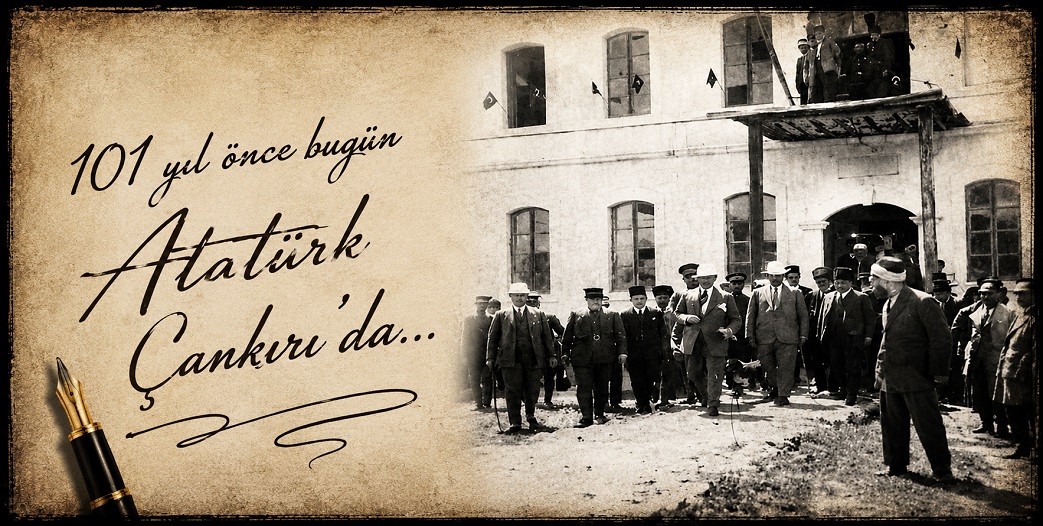 101 yıl önce bugün
Atatürk
Çankırı'da...